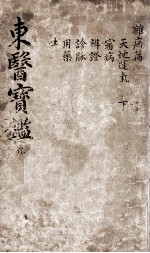 雜病篇
天地運氣 下
審病
辨證
診脉
用藥
吐
東醫寶鑑